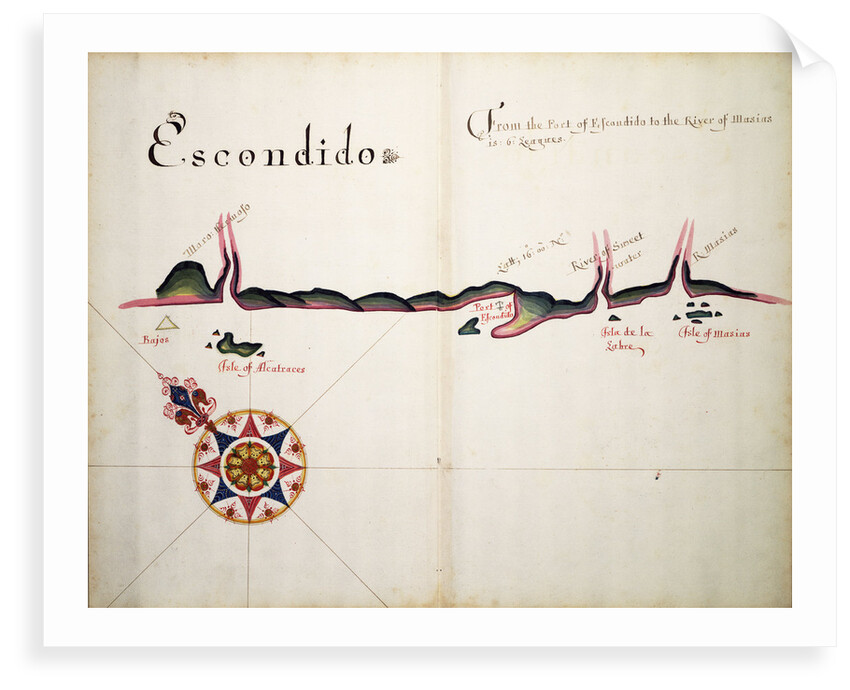 Escondido
From the Port of Escondido to the River of Masias
is: 6 Leagues.
Moro: Hermoso
Latt, 16: 00 N
River of Sweet
water
R. Masias
Port of
Escondido
Bajos
Isle of Alcatraces
Isla de la
Isle of Masias